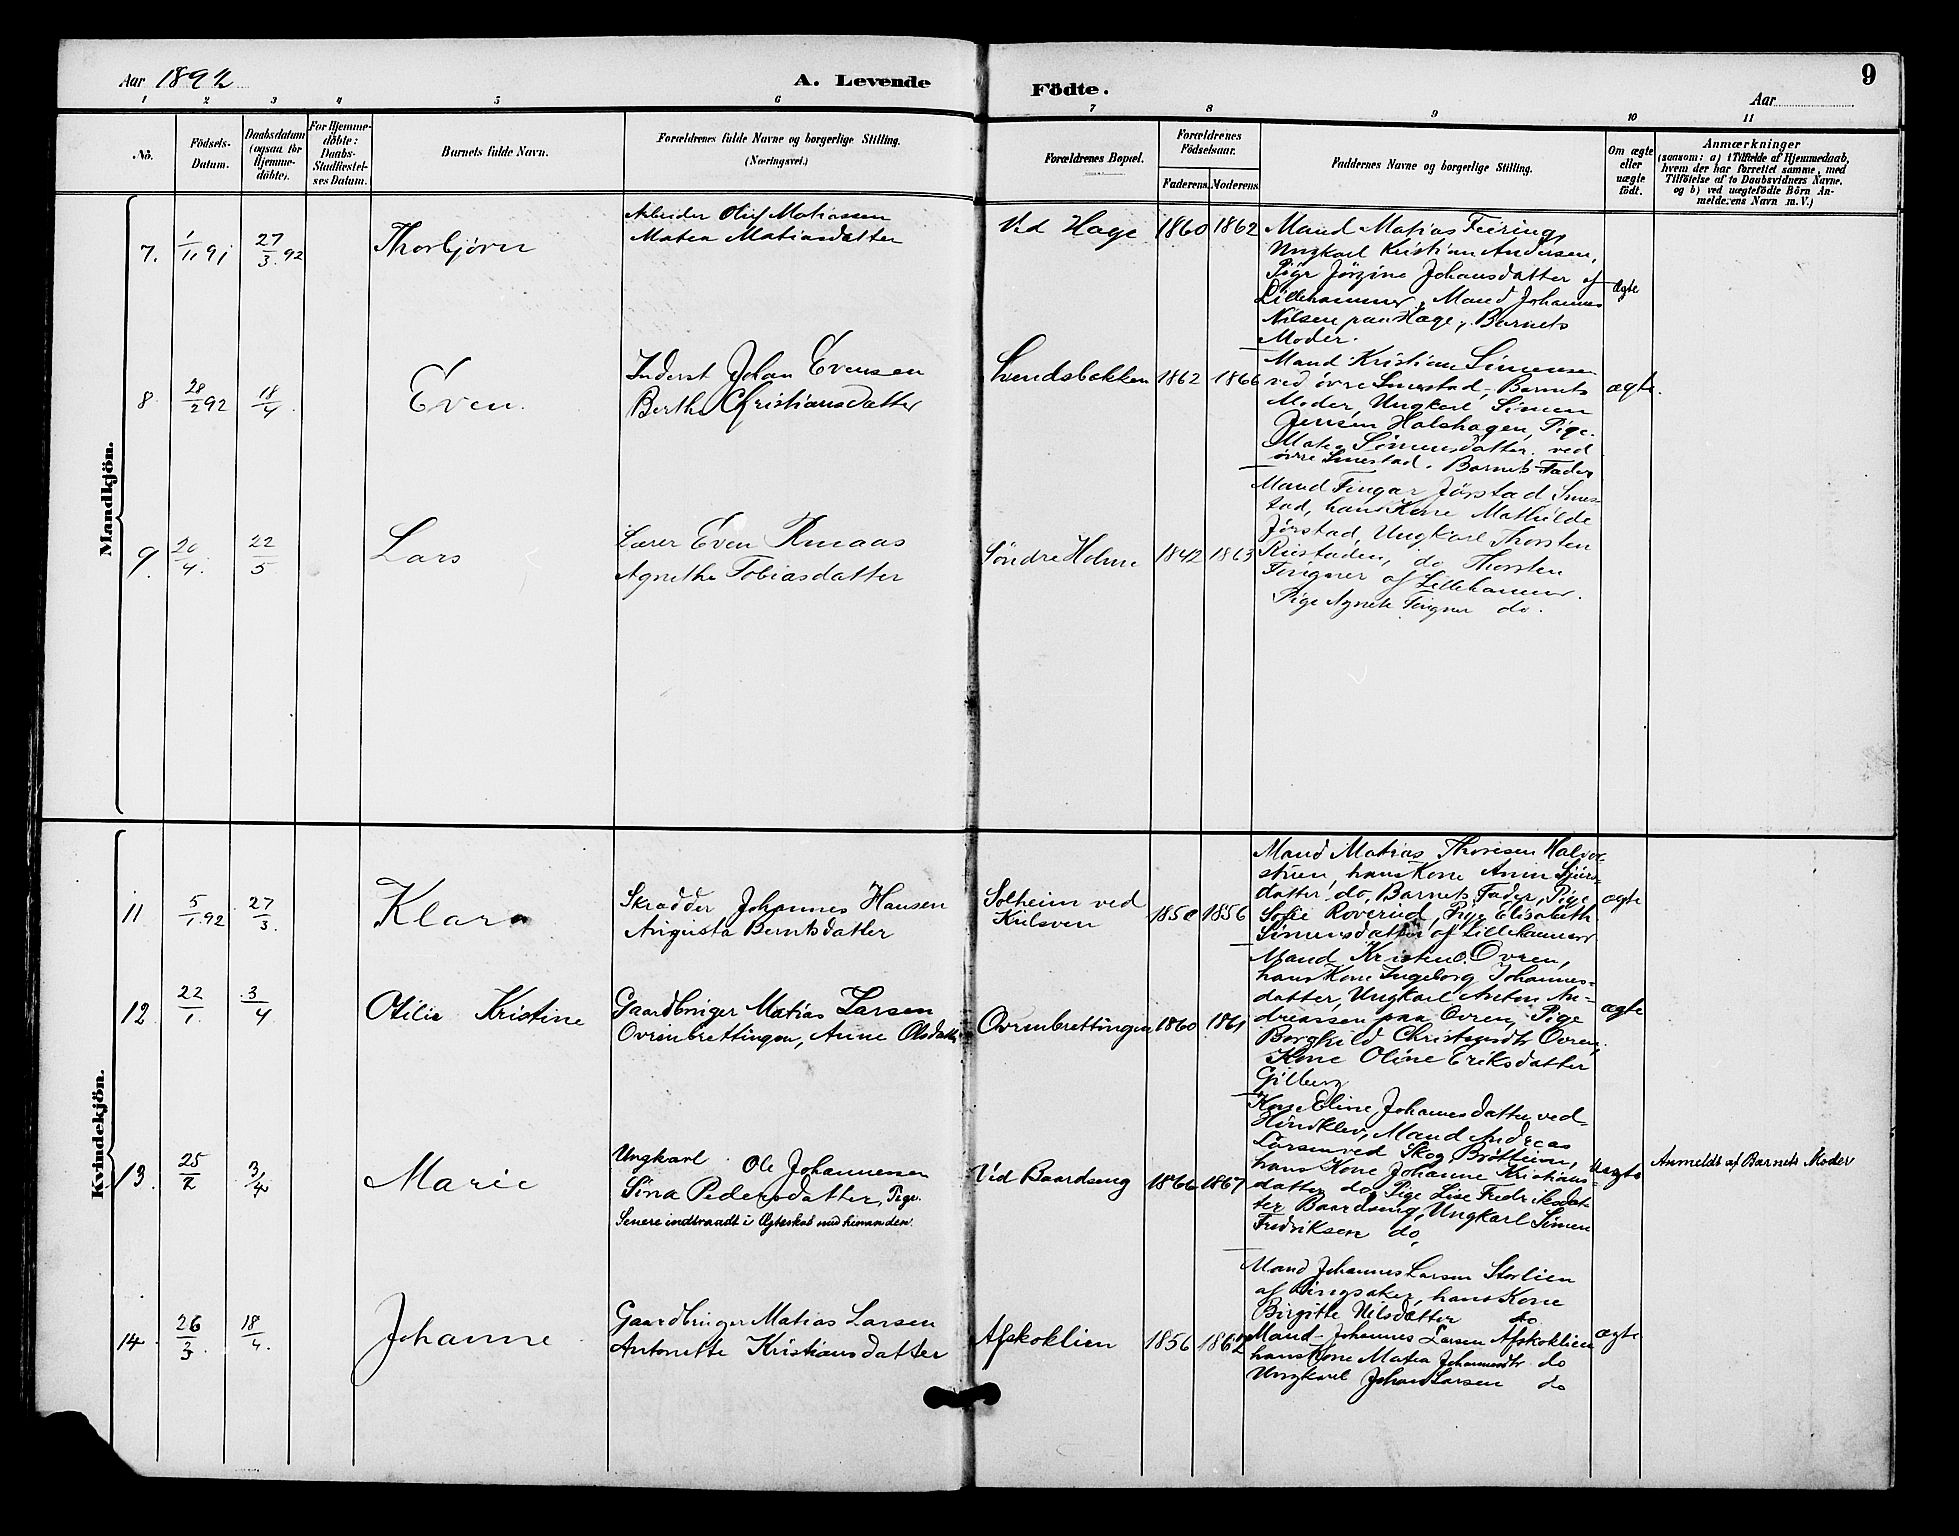 Aar 1892
A. Levende
Födte.
9
Aar
1 2 3 4 5 6 7 8 9 10 11
No.
Födsels-
Datum.
Daabsdatum
(ogsaa for
Hjemme-
döbte).
For Hjemme-
döbte:
Daabs-
Stadfæstel-
ses Datum.
Barnets fulde Navn.
Forældrenes fulde Navne og borgerlige Stilling.
(Næringsvei.)
Forældrenes Bopæl.
Forældrenes
Födselsaar.
Faderens. Moderens.
Faddernes Navne og borgerlige Stilling.
Om ægte
eller
uægte
födt.
Anmærkninger
(saasom: a) i Tilfælde af Hjemmedaab,
hvem der har forrettet samme, med
Tilföielse af to Daabsvidners Navne,
og b) ved uægtefödte Börn An-
melderens Navn m. V.)
Mandkjön.
7. 1/11 91 27/3 92 Thorbjørn
Arbeider Oluf Matiassen
Matea Matiasdatter
Ved Hage 1860 1862
Mand Matias Feiring,
Ungkarl Kristian Andersen,
Pige Jørgine Johansdatter af
Lillehammer, Mand Johannes
Nilsen paa Hage, Barnets
Moder.
ægte
8. 28/2 92 18/4 Even
Inderst Johan Evensen
Berthe Christiansdatter
Svendsbakken 1862 1866
Mand Kristian Simensen
ved øvre Smestad, Barnets
Moder, Ungkarl Simen
Jensen Halshagen, Pige
Matea Simensdatter ved
øvre Smestad. Barnets Fader
ægte.
9. 20/4. 22/5 Lars
Lærer Even Kmaas
Agnethe Tobiasdatter
Søndre Holme 1842 1863
Mand Fingar Jørstad Smes-
tad, hans Kone Mathilde
Jørstad, Ungkarl Thorsten
Rustaden, do Thorsten
Fingner af Lillehammer.
Pige Agnete Fingner do.
Kvindekjön.
11 5/1 92 27/3. Klara
Skrædder Johannes Hansen
Augusta Berntsdatter
Solheim ved
Kulsven
1850 1856
Mand Matias Thoresen Halvor-
stuen, hans Kone Anne Sjurs-
datter do, Barnets Fader, Pige
Sofie Roverud, Pige Elisabeth
Simensdatter af Lillehammer
ægte
12. 22/1. 3/4 Otilie Kristine
Gaardbruger Matias Larsen
Ovrenbrettingen, Anne Olsdatter
Ovrenbrettingen 1860 1861
Mand Kristen O. Ovren,
hans Kone Ingeborg Johannes-
datter, Ungkarl Anton An-
dreassen paa Ovren, Pige
Borghild Christensdtr Ovren,
Kone Oline Eriksdatter
Gilberg
ægte
13. 25/2 3/4 Marie
Ungkarl Ole Johannesen
Sina Pedersdatter, Pige.
Senere indtraadt i Ægteskab med hinanden.
Ved Baardseng 1866 1867
Kone Eline Johannesdatter ved
Hindklev, Mand Andreas
Larsen ved Skog Brøttum,
hans Kone Johanne Kristians-
datter do, Pige Lise Fredriksdat-
ter Baardseng, Ungkarl Simen
Fredriksen do.
Uægte
Anmeldt af Barnets Moder
14. 26/3. 18/4. Johanne
Gaardbruger Matias Larsen
Antonette Kristiansdatter
Afskoklien 1856 1862
Mand Johannes Larsen Storlien
af Ringsaker, hans Kone
Birgitte Nilsdatter do
Mand Johannes Larsen Afskoklien
hans Kone Matea Johannesdtr do
Ungkarl Johan Larsen do
ægte